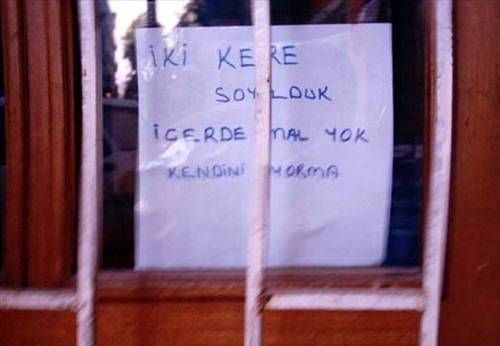 İKİ KERE
SOYULDUK
İÇERDE MAL YOK
KENDİNİ YORMA